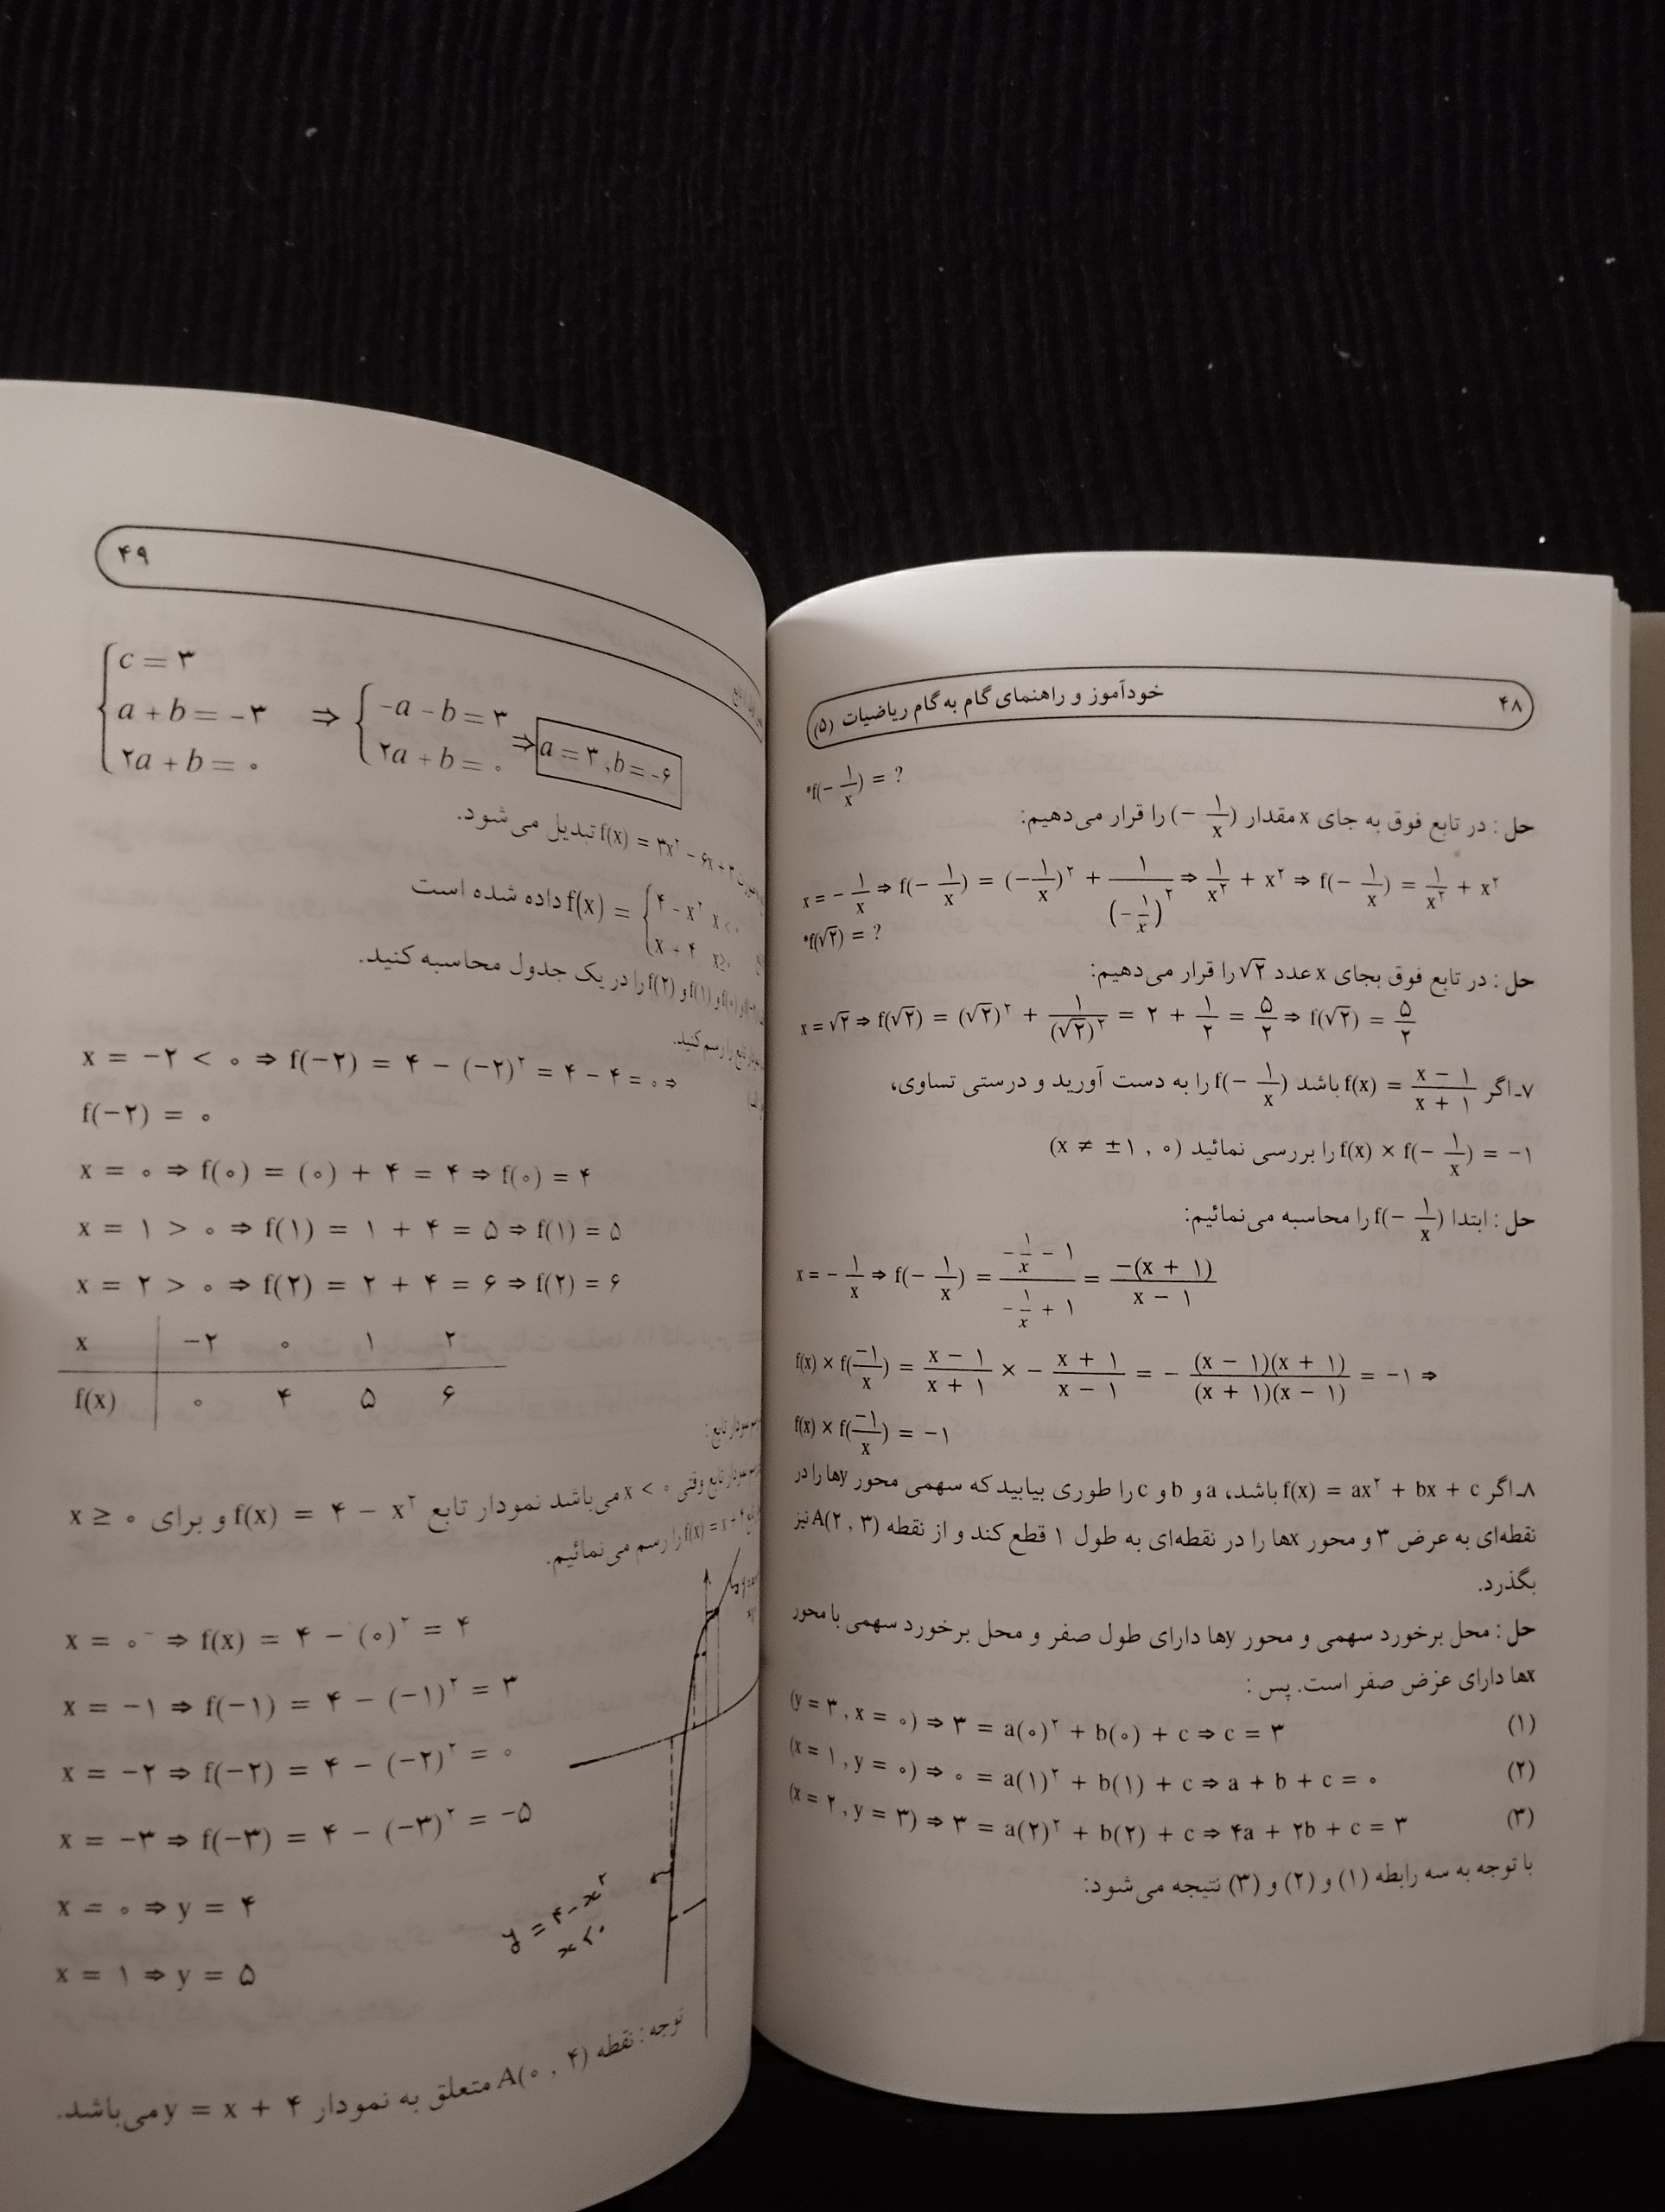 ۴۸
خودآموز و راهنمای گام به گام ریاضیات (۵)
*f(− ۱/x) = ?
حل : در تابع فوق به جای x مقدار (− ۱/x) را قرار می‌دهیم:
x = − ۱/x ⇒ f(− ۱/x) = (− ۱/x)² + ۱/(− ۱/x)² ⇒ ۱/x² + x² ⇒ f(− ۱/x) = ۱/x² + x²
*f(√۲) = ?
حل : در تابع فوق بجای x عدد √۲ را قرار می‌دهیم:
x = √۲ ⇒ f(√۲) = (√۲)² + ۱/(√۲)² = ۲ + ۱/۲ = ۵/۲ ⇒ f(√۲) = ۵/۲
۷ـ اگر f(x) = (x − ۱)/(x + ۱) باشد f(− ۱/x) را به دست آورید و درستی تساوی،
f(x) × f(− ۱/x) = −۱ را بررسی نمائید (x ≠ ±۱ , ۰)
حل : ابتدا f(− ۱/x) را محاسبه می‌نمائیم:
x = − ۱/x ⇒ f(− ۱/x) = (− ۱/x − ۱)/(− ۱/x + ۱) = −(x + ۱)/(x − ۱)
f(x) × f(−۱/x) = (x − ۱)/(x + ۱) × − (x + ۱)/(x − ۱) = − (x − ۱)(x + ۱)/(x + ۱)(x − ۱) = −۱ ⇒
f(x) × f(−۱/x) = −۱
۸ـ اگر f(x) = ax² + bx + c باشد، a و b و c را طوری بیابید که سهمی محور yها را در
نقطه‌ای به عرض ۳ و محور xها را در نقطه‌ای به طول ۱ قطع کند و از نقطه A(۲ , ۳) نیز
بگذرد.
حل : محل برخورد سهمی و محور yها دارای طول صفر و محل برخورد سهمی با محور
xها دارای عزض صفر است. پس :
(y = ۳ , x = ۰) ⇒ ۳ = a(۰)² + b(۰) + c ⇒ c = ۳ (۱)
(x = ۱ , y = ۰) ⇒ ۰ = a(۱)² + b(۱) + c ⇒ a + b + c = ۰ (۲)
(x = ۲ , y = ۳) ⇒ ۳ = a(۲)² + b(۲) + c ⇒ ۴a + ۲b + c = ۳ (۳)
با توجه به سه رابطه (۱) و (۲) و (۳) نتیجه می‌شود:
۴۹
c = ۳
a + b = −۳ ⇒ −a − b = ۳ ⇒ a = ۳ , b = −۶
۲a + b = ۰ ۲a + b = ۰
f(x) = ۳x² − ۶x + ۳ تبدیل می‌شود.
f(x) = { ۴ − x² x < ۰ داده شده است
x + ۴ x ≥ ۰
f(۰) و f(۱) و f(۲) را در یک جدول محاسبه کنید.
را رسم کنید.
x = −۲ < ۰ ⇒ f(−۲) = ۴ − (−۲)² = ۴ − ۴ = ۰ ⇒
f(−۲) = ۰
x = ۰ ⇒ f(۰) = (۰) + ۴ = ۴ ⇒ f(۰) = ۴
x = ۱ > ۰ ⇒ f(۱) = ۱ + ۴ = ۵ ⇒ f(۱) = ۵
x = ۲ > ۰ ⇒ f(۲) = ۲ + ۴ = ۶ ⇒ f(۲) = ۶
x −۲ ۰ ۱ ۲
f(x) ۰ ۴ ۵ ۶
نمودار تابع :
نمودار تابع وقتی x < ۰ می‌باشد نمودار تابع f(x) = ۴ − x² و برای x ≥ ۰
f(x) = x + ۴ را رسم می‌نمائیم.
x = ۰⁻ ⇒ f(x) = ۴ − (۰)² = ۴
x = −۱ ⇒ f(−۱) = ۴ − (−۱)² = ۳
x = −۲ ⇒ f(−۲) = ۴ − (−۲)² = ۰
x = −۳ ⇒ f(−۳) = ۴ − (−۳)² = −۵
x = ۰ ⇒ y = ۴
x = ۱ ⇒ y = ۵
y = ۴ − x²
x < ۰
توجه : نقطه A(۰ , ۴) متعلق به نمودار y = x + ۴ می‌باشد.